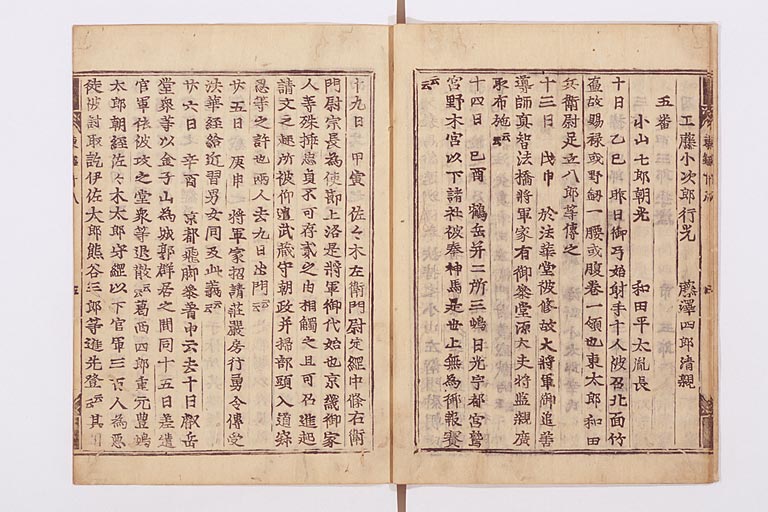 工藤小次郎行光 藤澤四郎清親
五番
小山七郎朝光 和田平太胤長
十日 乙巳 昨日御弓始射手十人被召北面竹
壺故賜禄或野釼一腰或腹巻一領也東太郎和田
兵衛尉足立八郎等傳之
十三日 戊申 於法華堂被修故大將軍御追善
導師真智法橋將軍家有御參堂源大夫將監親廣
取布施云云
十四日 己酉 鶴岳并二所三嶋日光宇都宮鷲
宮野木宮以下諸社被奉神馬是世上無為御報賽
云云
十九日 甲寅 佐々木左衛門尉定經中條右衛
門尉宗長為使節上洛是將軍御代始也京畿御家
人等殊挿忠貞不可存貳之由相觸之且可召進起
請文之趣所被仰遣武藏守朝政并掃部頭入道寂
忍等之許也兩人去九日出門云云
廿五日 庚申 將軍家招請莊嚴房行勇令傳受
法華經給近習男女同及此義云云
廿六日 辛酉 京都飛脚參着申云去十日叡岳
堂衆等以金子山為城郭群居之間同十五日差遣
官軍依被攻之堂衆等退散云云葛西四郎重元豊嶋
太郎朝經佐々木太郎守經以下官軍三百人為惡
徒被討取訖伊佐太郎熊谷三郎等進先登云云其